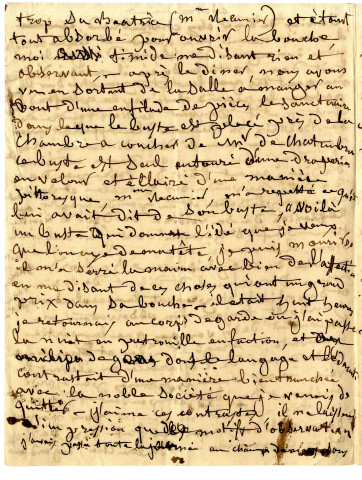 trop sa beatrice (Mme Recamier) et étant
tout absorbé pour ouvrir la bouche
moi timide ne disant rien et
observant, - après le diner, nous avons
vu en sortant de la salle a manger au
bout d'une enfilade de pièces, le sanctuaire
dans lequel le buste est placé près de la
chambre a coucher de Mr de Chateaubr
ce buste est seul entouré d'une draperie
en velour et éclairé d'une manière
pittoresque, Mme Recamier m'a repeté ce qu'il
lui avait dit de son buste, "Voilà
un buste qui donnera l'idé que je veux
que l'on aye de ma tête, je puis mourir"
il m'a serré la main avec bien de l'affect
en me disant de ces choses qui ont un grand
prix dans sa bouche - il était huit heures
je retournai au corps de garde où j'ai passé
la nuit en patrouille en faction, et
de gens dont le langage et
contrastait d'une manière bien tranchée
avec la noble société que je venais de
quitter - j'aime ces contrastes il me laissent
d'impression que de motifs d'observation
j'avais passé toute la journée au champ de mars dans